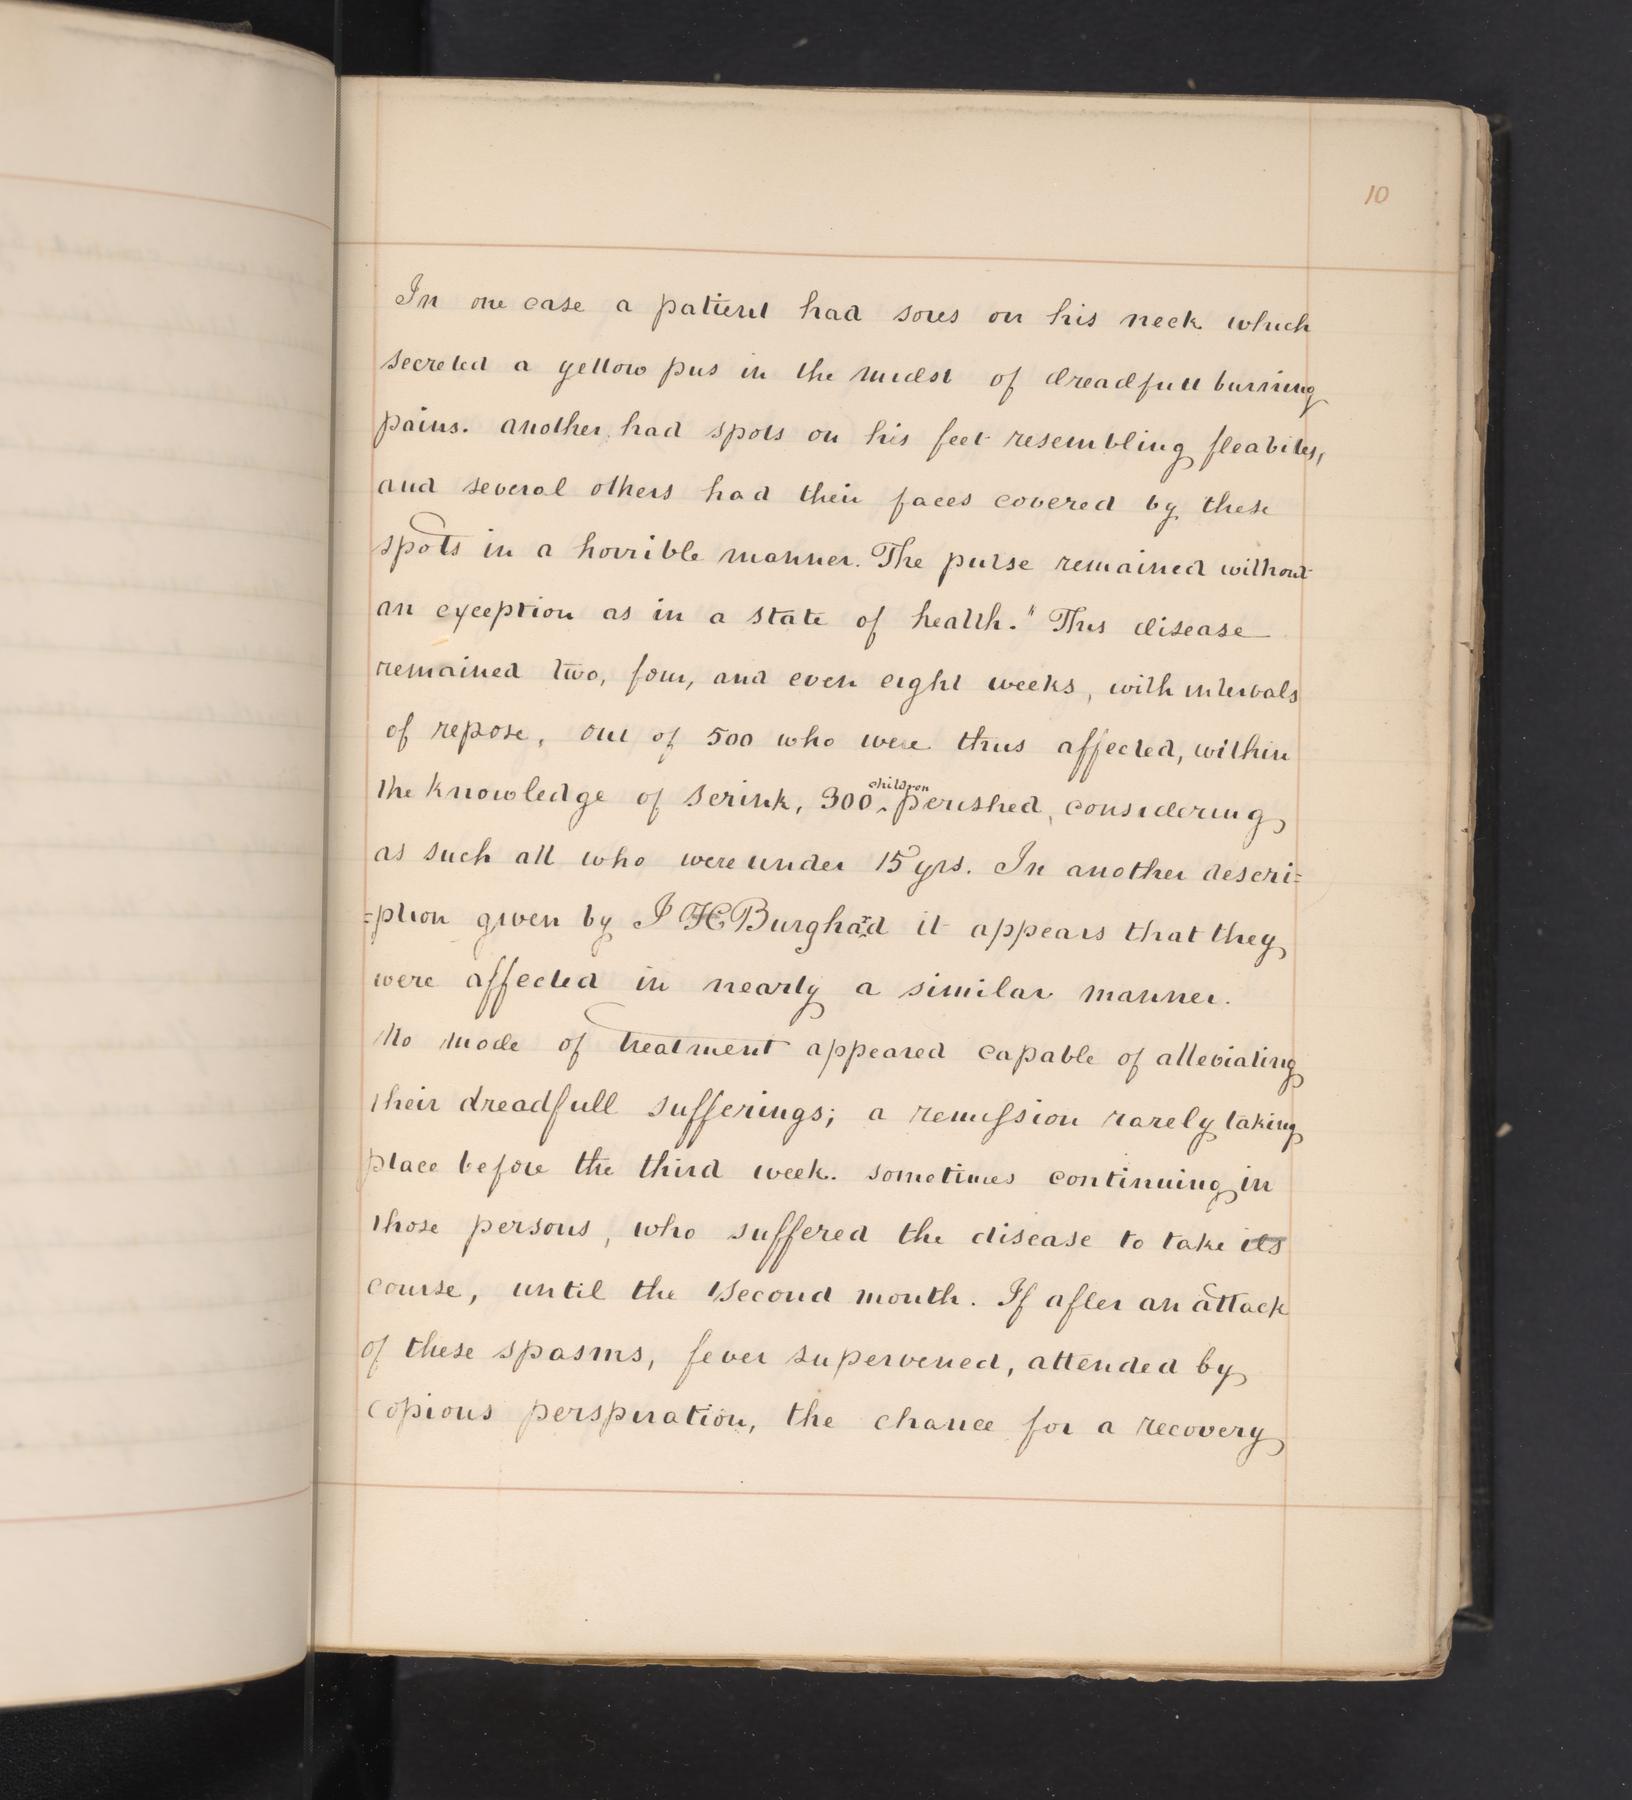 10
In one case a patient had sores on his neck which
secreted a yellow pus in the midst of dreadfull burning
pains. another had spots on his feet resembling fleabites,
and several others had their faces covered by these
spots in a horrible manner. The pulse remained without
an exception as in a state of health." This disease
remained two, four, and even eight weeks, with intervals
of repose, out of 500 who were thus affected, within
the knowledge of Scrink, 300 children perished, considering
as such all who were under 15 yrs. In another descri=
=ption given by J H Burghard it appears that they
were affected in nearly a similar manner.
No mode of treatment appeared capable of alleviating
their dreadfull sufferings; a remission rarely taking
place before the third week. sometimes continuing in
those persons, who suffered the disease to take its
course, until the second month. If after an attack
of these spasms, fever supervened, attended by
copious perspiration, the chance for a recovery